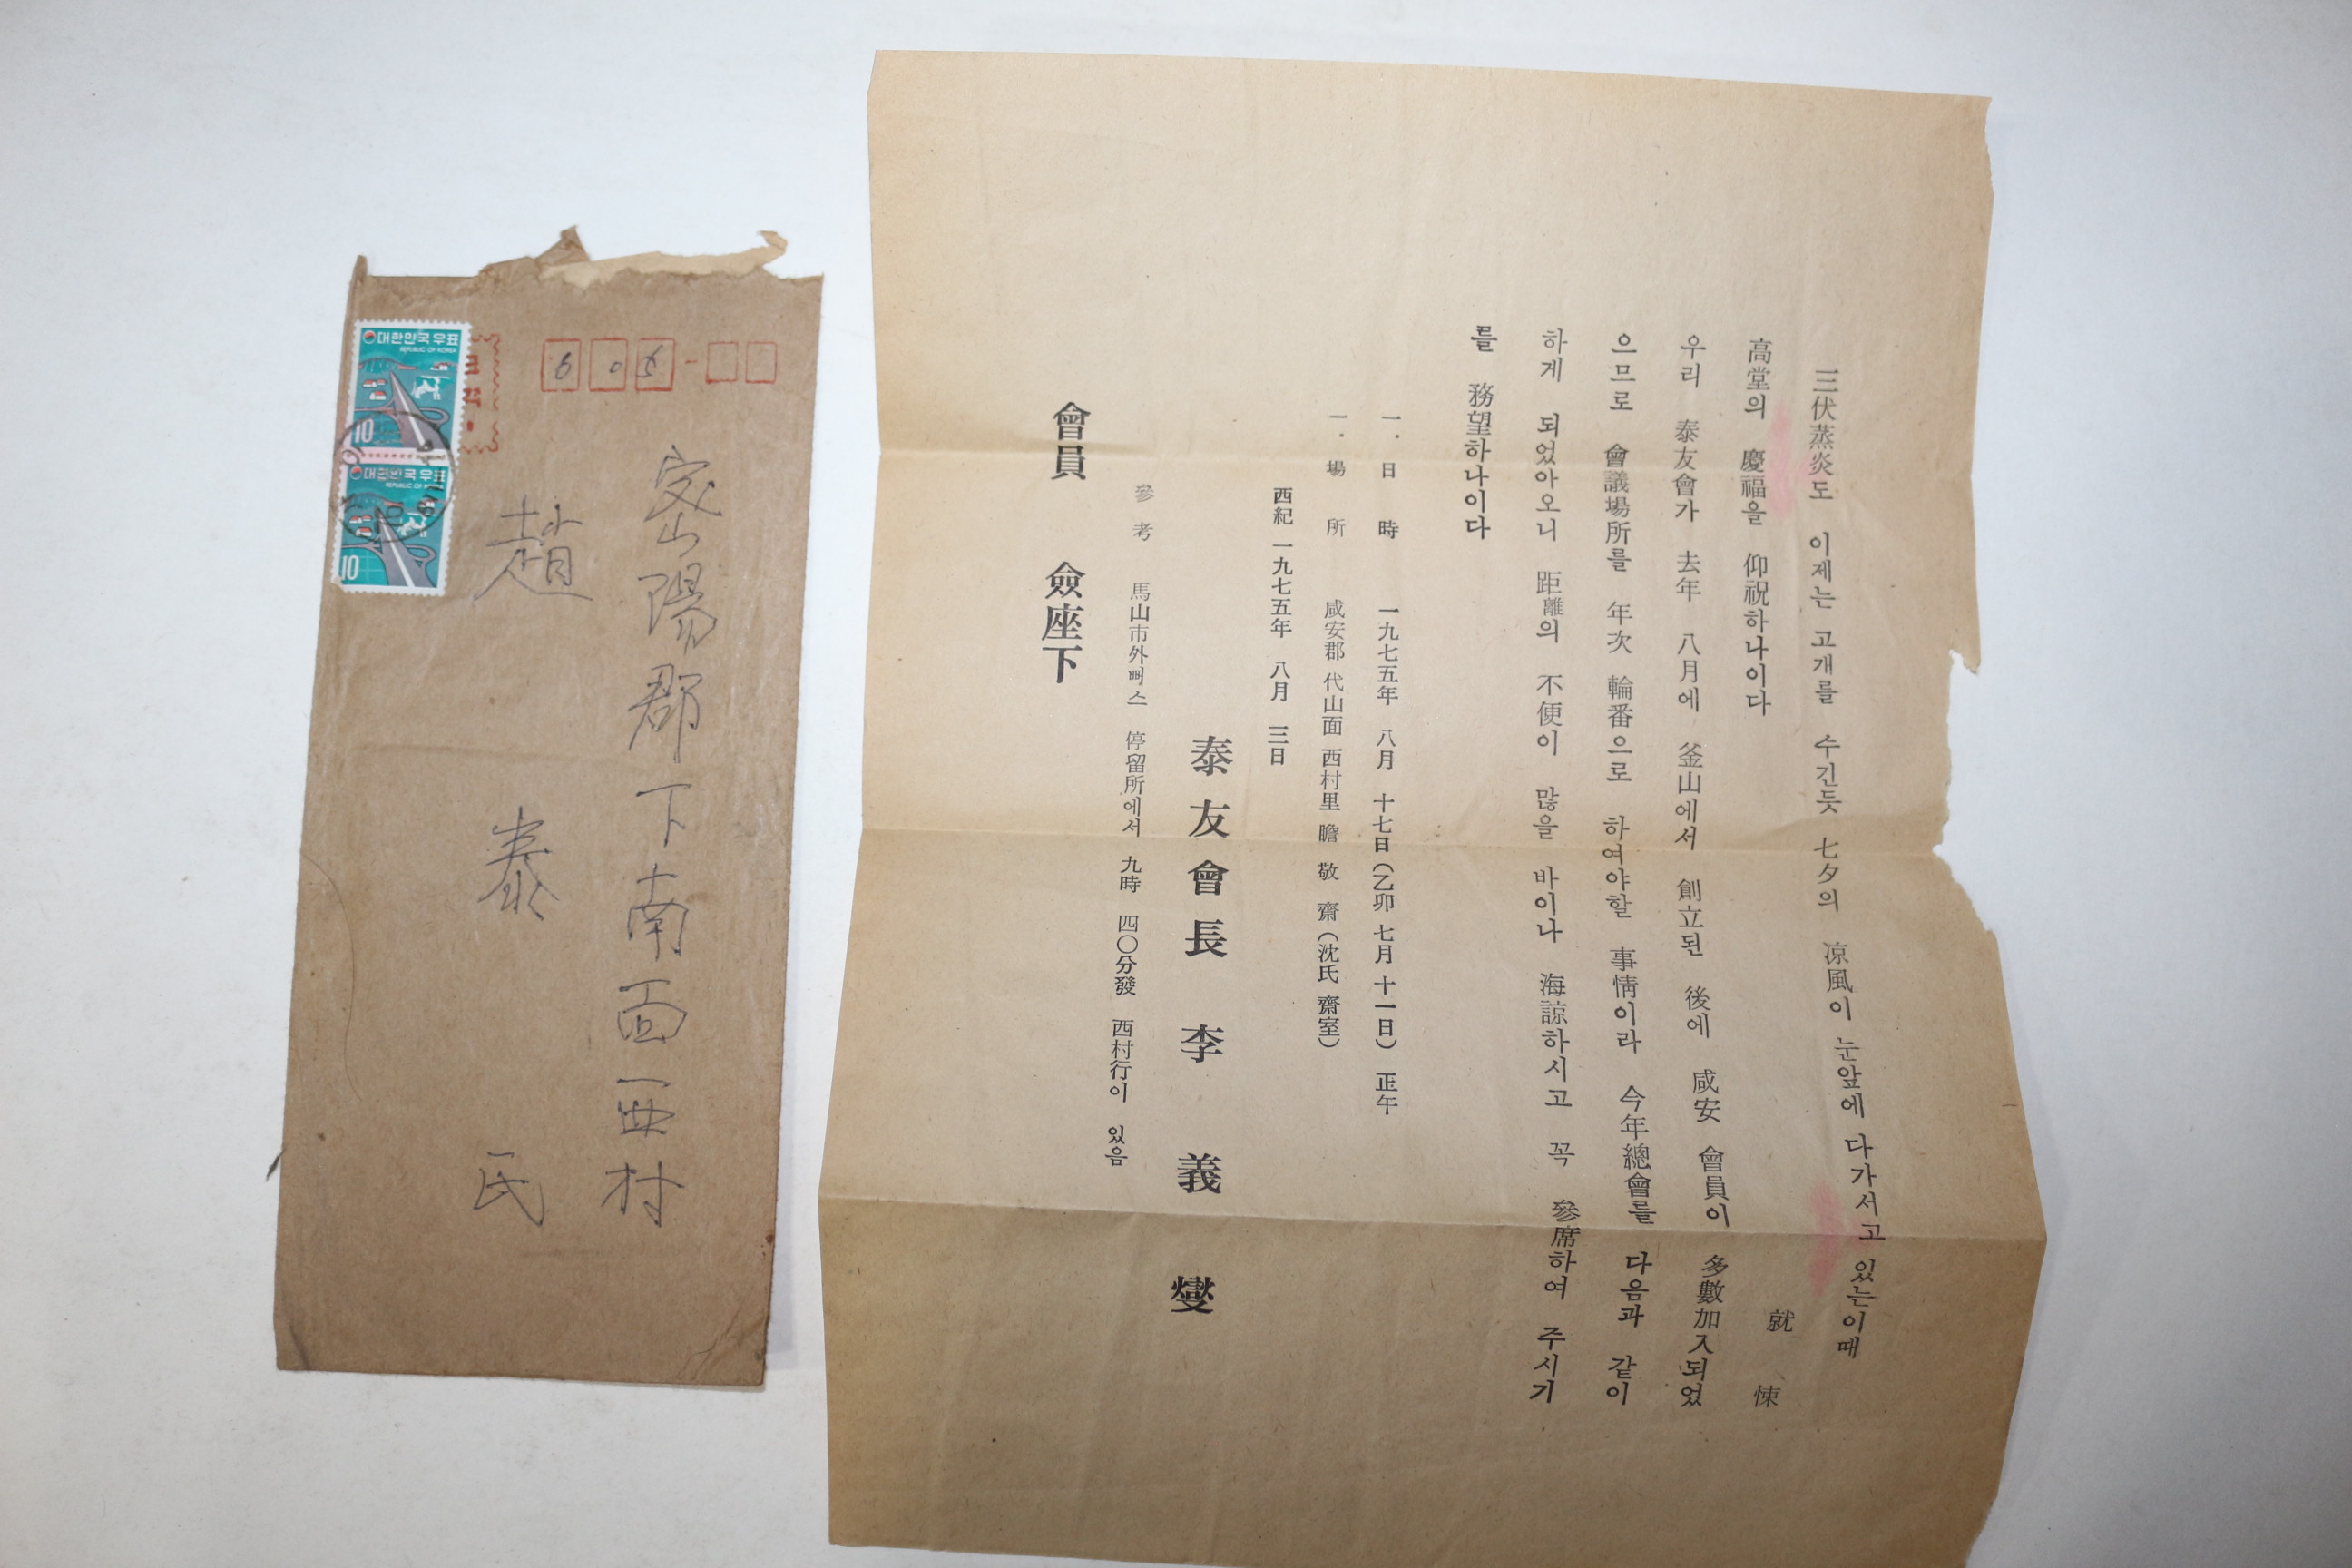 대한민국 우표
REPUBLIC OF KOREA
10
대한민국 우표
REPUBLIC OF KOREA
10
605-
密陽郡下南面西村
趙泰民
三伏蒸炎도 이제는 고개를 수긴듯 七夕의 凉風이 눈앞에 다가서고 있는이때
高堂의 慶福을 仰祝하나이다
就悚
우리 泰友會가 去年 八月에 釜山에서 創立된 後에 咸安 會員이 多數加入되었
으므로 會議場所를 年次 輪番으로 하여야할 事情이라 今年總會를 다음과 같이
하게 되었아오니 距離의 不便이 많을 바이나 海諒하시고 꼭 參席하여 주시기
를 務望하나이다
一. 日時 一九七五年 八月 十七日(乙卯 七月 十一日) 正午
一. 場所 咸安郡 代山面 西村里 瞻敬齋(沈氏 齋室)
西紀 一九七五年 八月 三日
泰友會長 李義燮
參考 馬山市外뻐스 停留所에서 九時 四〇分發 西村行이 있음
會員 僉座下